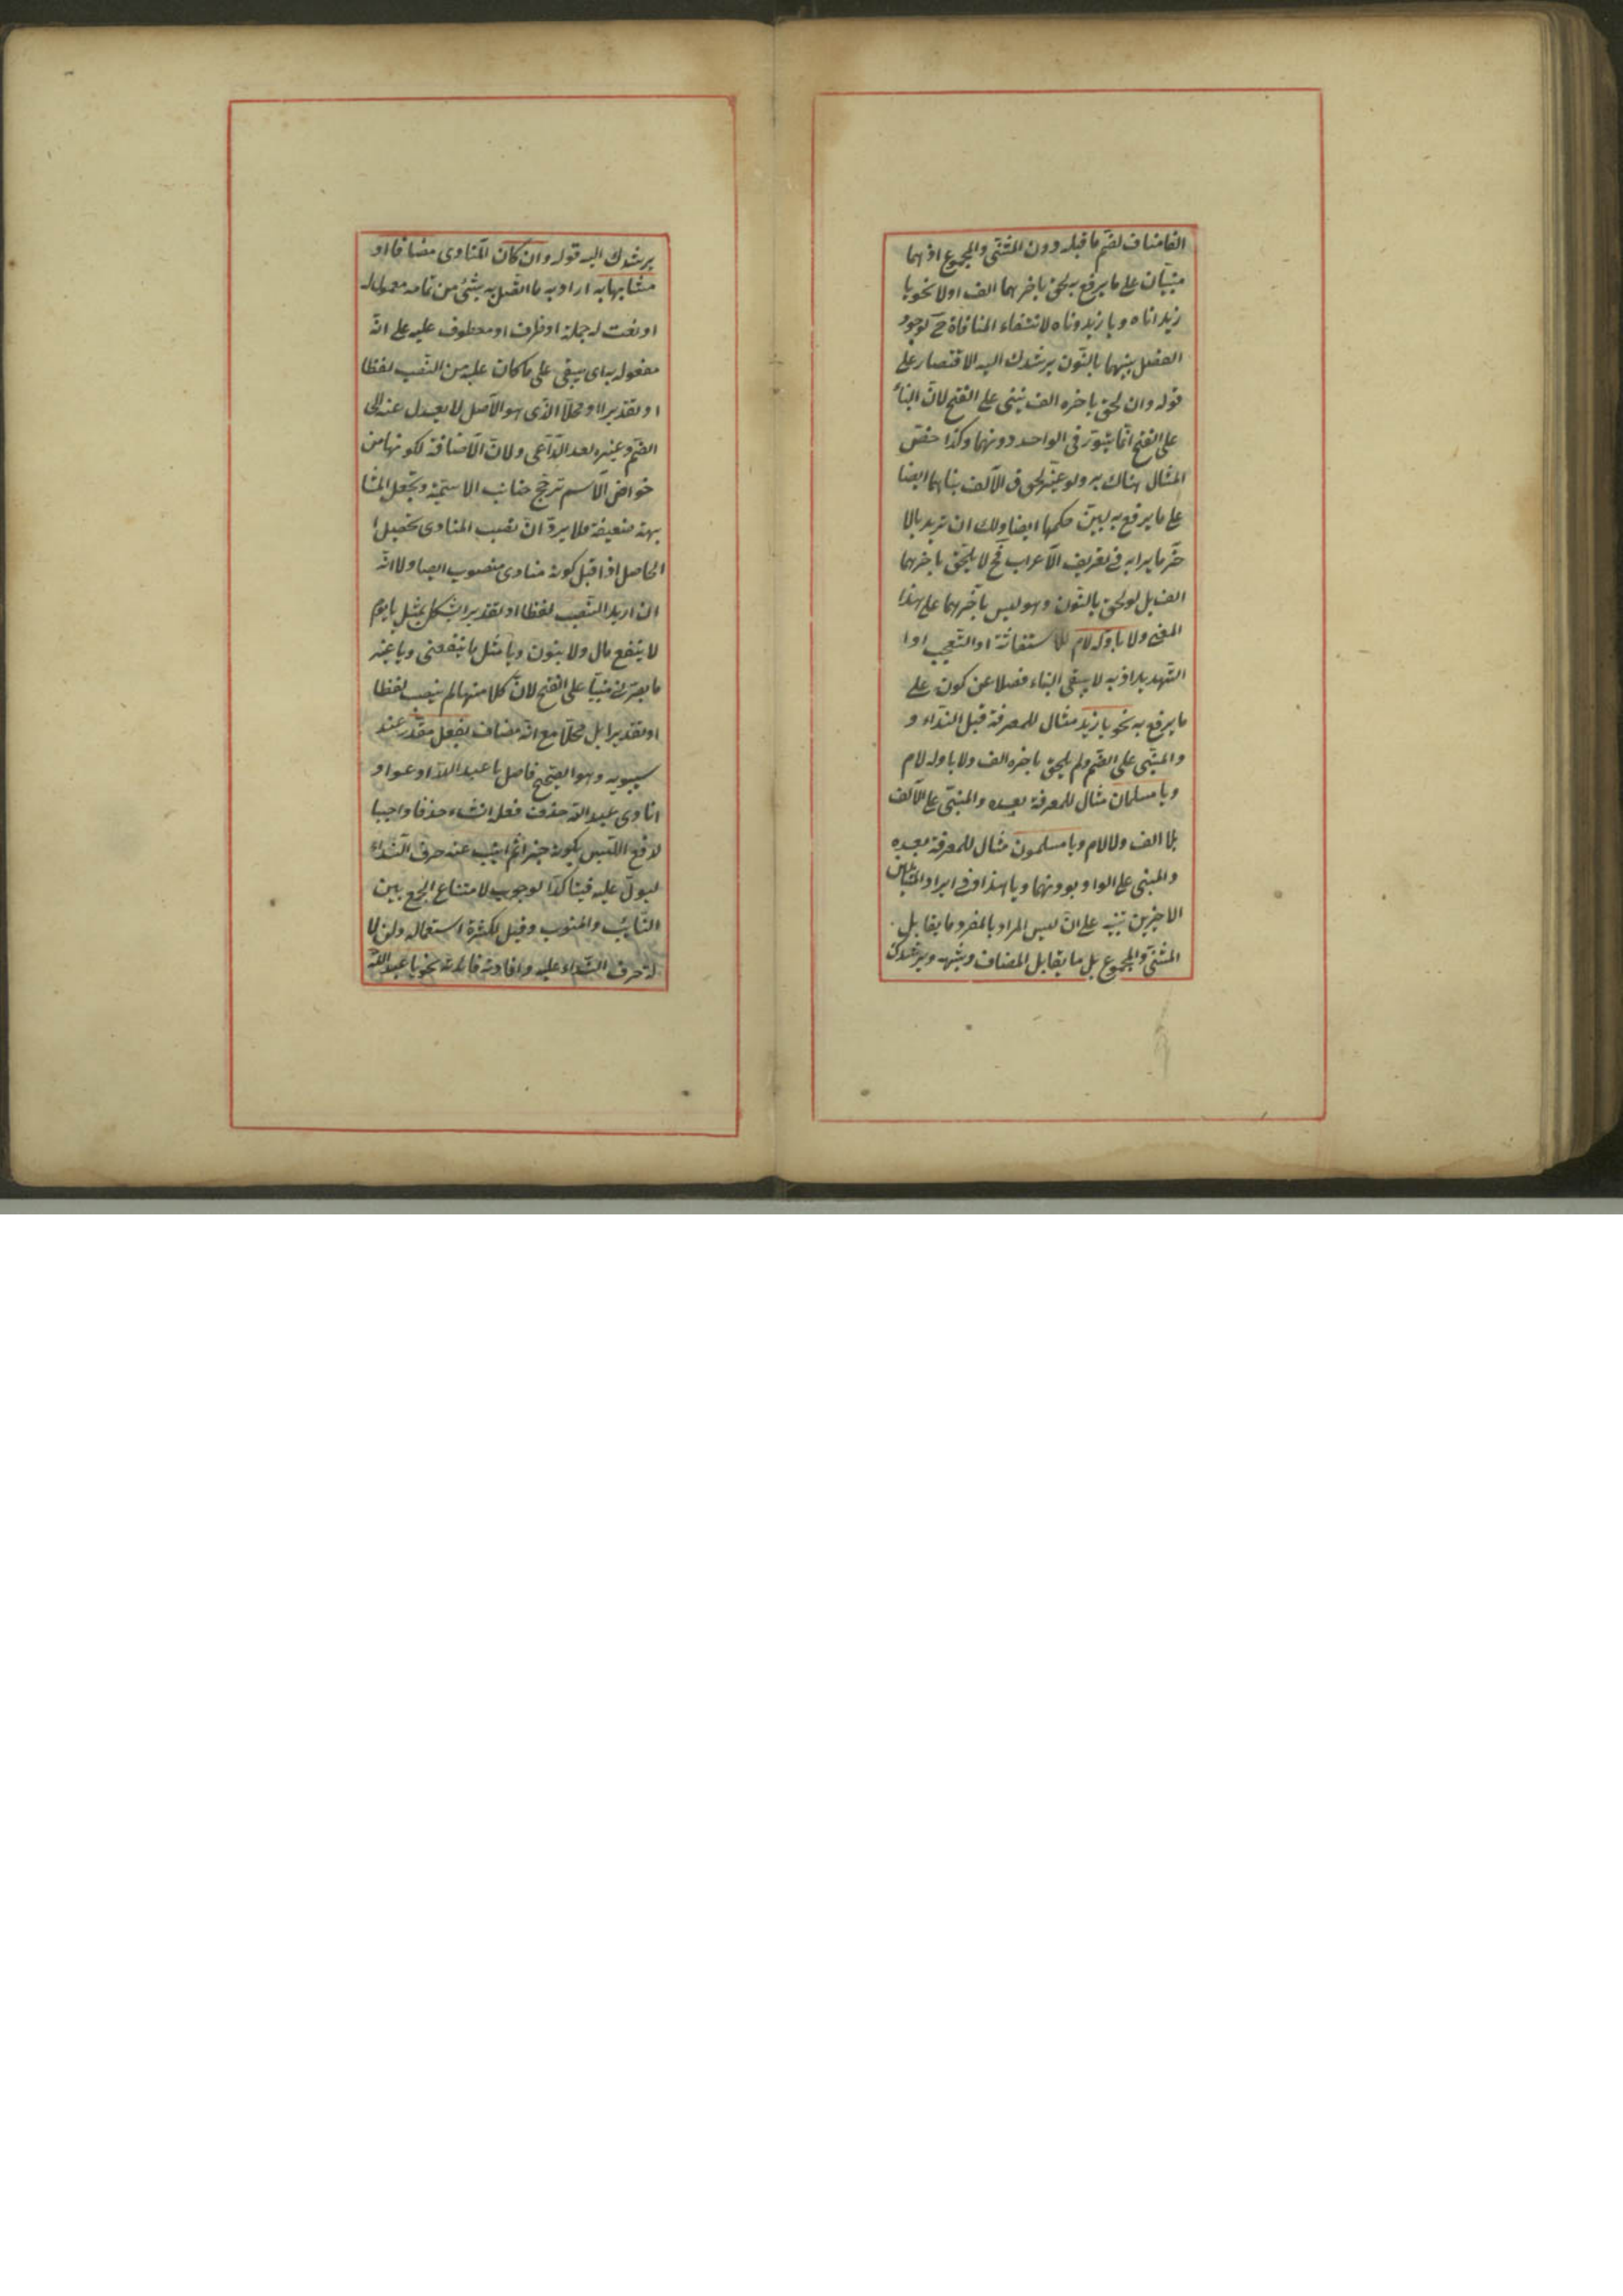 الفا مناف لضم ما قبله دون المثنى والمجموع اذ هما
مبنيان على ما يرفع به لحق باخرهما الف اولا نحو يا
زيداناه ويا زيدوناه لانتفاء المنافاة ح لوجود
الفصل بينهما بالنون يرشدك اليه الاقتصار على
قوله وان لحق باخره الف يبنى على الفتح لان البناء
على الفتح انما يتصور في الواحد دونهما وكذا خص
المثال هناك به ولو عند لحوق الالف بنائهما ايضا
على ما يرفع به ليبين حكمها ايضا ولك ان تريد بالا
خر ما يراد به في تعريف الاعراب فح لا يلحق باخرهما
الف بل لو لحق بالنون وهو ليس باخرهما على هذا
المعنى ولا باوله لام للاستغاثة او التعجب او ا
لتهديد اذ به لا يبقى البناء فضلا عن كونه على
ما يرفع به نحو يا زيد مثال للمعرفة قبل النداء و
والمبنى على الضم ولم يلحق باخره الف ولا باوله لام
ويا مسلمان مثال للمعرفة بعده والمبنى على الالف
بلا الف ولا لام ويا مسلمون مثال للمعرفة بعده
والمبنى على الواو بدونهما ويا هذا وفي ايراد المثالين
الاخرين تنبيه على ان ليس المراد بالمفرد ما يقابل
المثنى والمجموع بل ما يقابل المضاف وشبهه ويرشدك
يرشدك اليه قوله وان كان المنادى مضافا او
مشابها به اراد به ما اتصل به شئ من تمامه معمول له
او نعت له جملة او ظرف او معطوف عليه على انه
مفعول به اى يبقى على ما كان عليه من النصب لفظا
او تقديرا او محلا الذى هو الاصل لا يعدل عنه الى
الضم وغيره لعدم الداعى ولان الاضافة لكونها من
خواص الاسم ترجح جانب الاسمية وتجعل المشا
بهة ضعيفة فلا يرد ان نصب المنادى تحصيل ا
لحاصل اذا قبل كونه منادى منصوب ايضا ولا انه
ان اريد النصب لفظا او تقديرا يشكل بمثل يا يوم
لا ينفع مال ولا بنون ويا مثل ما ينفعنى ويا غير
ما يضرنى مبنيا على الفتح لان كلا منها لم ينصب لفظا
او تقديرا بل محلا مع انه مضاف بفعل مقدر عند
سيبويه وهو الصحيح فاصل يا عبد الله ادعوا و
انادى عبد الله حذف فعل انشاء حذفا واجبا
لدفع اللبس بكونه خبرا ثم انيب عنه حرف النداء
ليدل عليه فيتاكد الوجوب لامتناع الجمع بين
النائب والمنوب وقيل لكثرة استعماله ولدلا
لة حرف النداء عليه وافادته فائدته نحو يا عبد الله